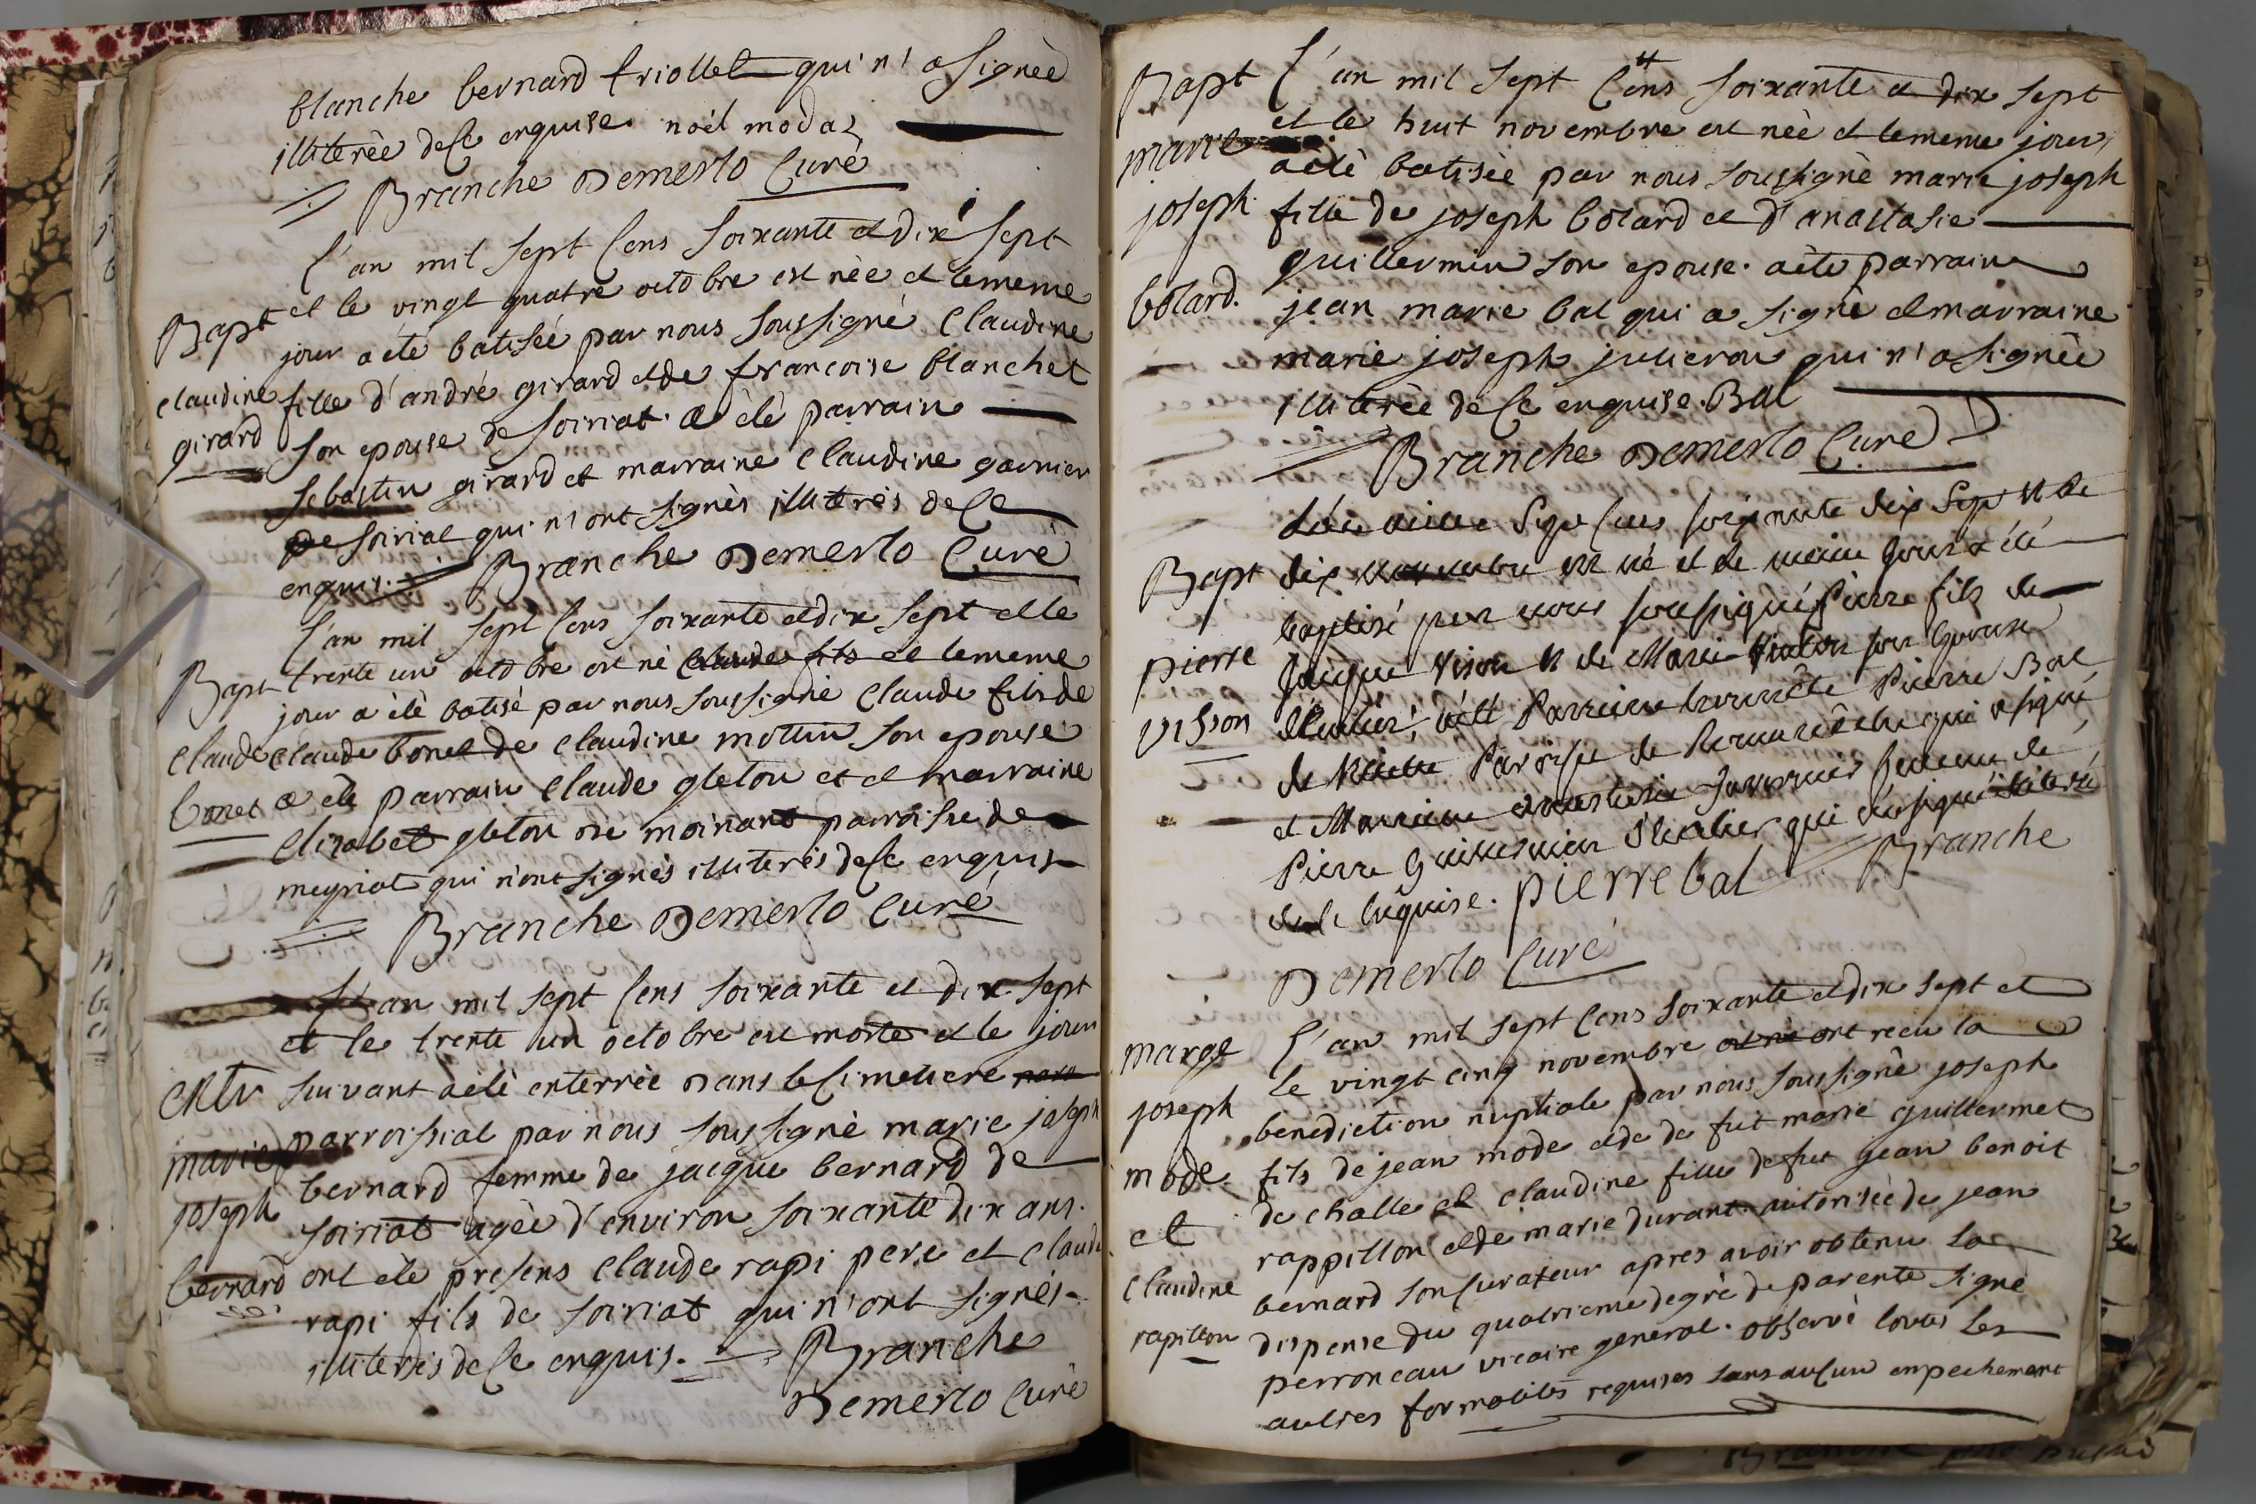 blanche bernard triollet qui n'a signèe
illiterèe de Ce enquise noèl modas
Branche Demerlo Curè
L'an mil sept Cens soixante et dix sept
Bapt et le vingt quatre octobre est nèe et le meme
jour a étè batisée par nous soussigné Claudine
claudine fille d'andré girard et de francoise blanchet
girard son epouse de soiriat. a été parrain
sebastin girard et marraine Claudine garnier
de soiriat qui n'ont signès illiterés de Ce
enquis. Branche Demerlo Curè
L'an mil sept Cens soixante et dix sept et le
Bapt trente un octobre est né Claude fils et le meme
jour a étè batisé par nous soussignè Claude fils de
Claude Claude bonet de Claudine mottin son epouse
bonet a été parrain Claude gleton et et marraine
Elizabet gleton de moinant parroisse de
meyriat qui n'ont signès illiterés de Ce enquis
Branche Demerlo Curé
L'an mil sept Cens soixante et dix sept
et le trente un octobre est morte et le jour
entr suivant a étè enterrèe Dans le Cimetiere paro
marie parroissial par nous soussignè marie joseph
joseph bernard femme de jacque bernard de
soiriat agèe d'environ soixante dix ans.
bernard ont étè presens Claude rapi pere et Claude
rapi fils de soiriat qui n'ont signès
illiterés de Ce enquis. Branche
Demerlo Curè
Bapt L'an mil sept Cens soixante et dix sept
et le huit novembre est nèe et le meme jour
marie a étè batisèe par nous soussignè marie joseph
joseph fille de joseph bolard et d'anastasie
guillermin son epouse. a ète parrain
bolard. jean marie bal qui a signè et marraine
marie joseph julieron qui n'a signèe
illiterèe de Ce enquise. Bal
Branche Demerlo Curè
L'an mille Sept Cens soixante dix Sept et le
Bapt dix novembre est né et le meme jour a été
baptisé par nous soussigné Pierre fils de
pierre Jacque Vison et de Marie Violon son Epouse
vison Parrain Pierre Bal
de Paroisse de qui a signé
et Marraine femme de
Pierre Guillermin qui n'a signé illiterée
de Ce Enquise. pierre bal Branche
Demerlo Curé
L'an mil sept Cens soixante et dix sept et
marge le vingt cinq novembre est né ont recu la
joseph benediction nuptiale par nous soussignè joseph
mode fils de jean mode et de de fut marie guillermet
et de challe et Claudine fille de fut jean benoit
rappillon et de marie durant. autorisèe de jean
Claudine bernard son Curateur apres avoir obtenu la
rapillon dispense du quatrieme degrè de parente signè
perroncau vicaire general. observè toutes les
autres formalités requises sans aucun empechement